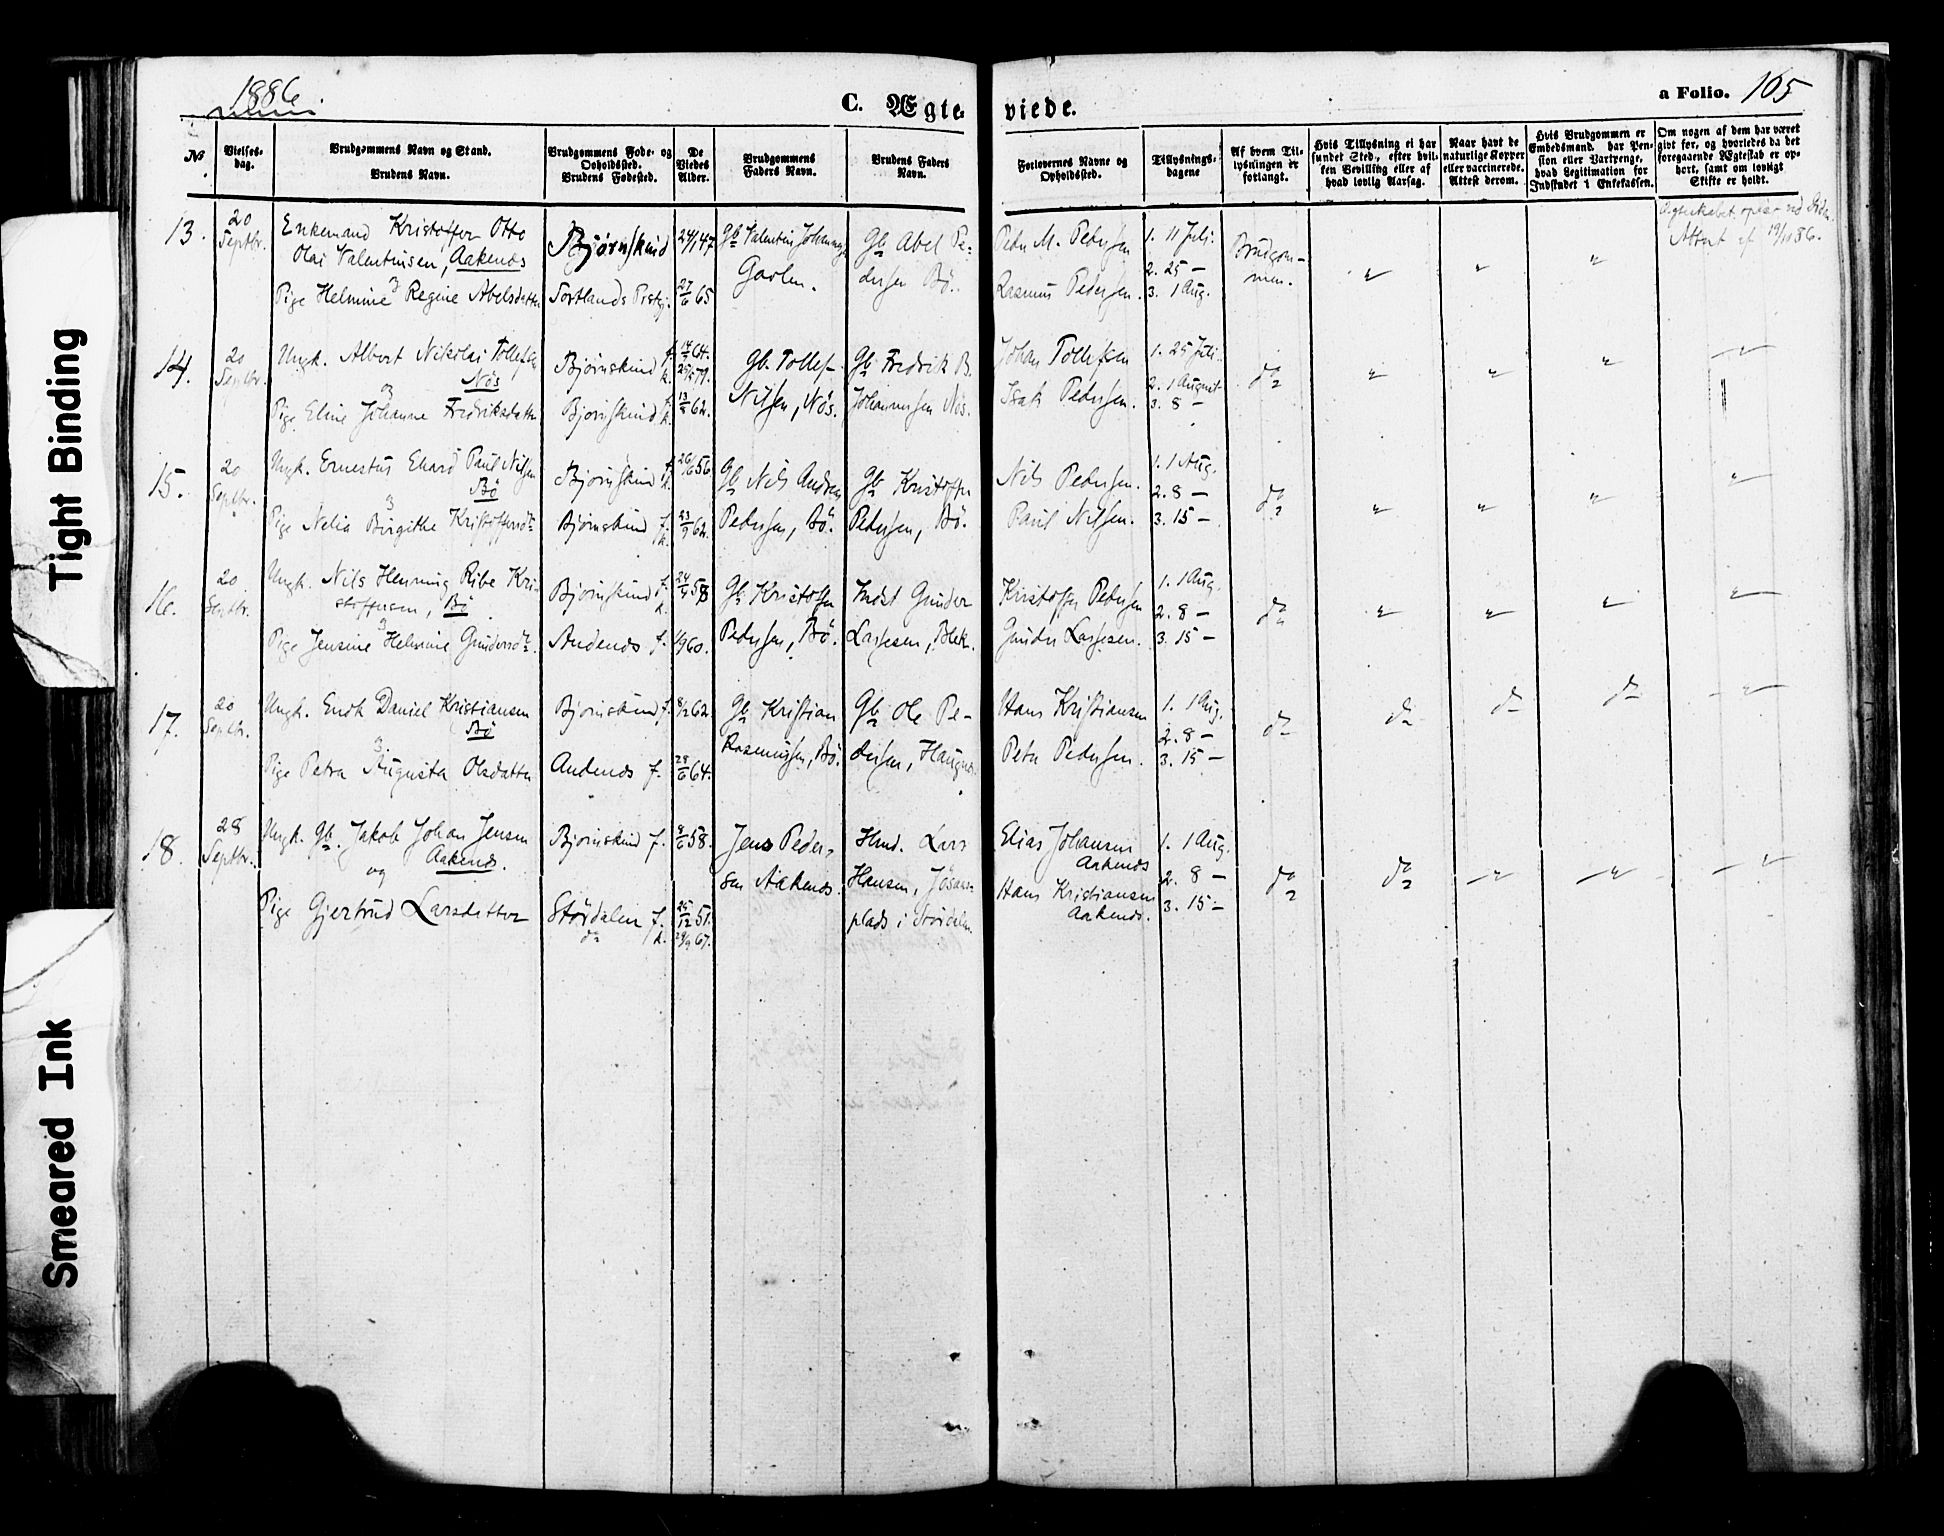 Tight Binding
Smeared Ink
1886
C. Ægte-
viede.
a Folio. 165
№
Vielses-
dag.
Brudgommens Navn og Stand.
Brudens Navn.
Brudgommens Føde- og
Opholdssted.
Brudens Fødested.
De
Viedes
Alder.
Brudgommens
Faders Navn.
Brudens Faders
Navn.
Forlovernes Navne og
Opholdssted.
Tillysnings-
dagene
Af hvem Til-
lysningen er
forlangt.
Hvis Tillysning ei har
fundet Sted, efter hvil-
ken Bevilling eller af
hvad lovlig Aarsag.
Naar havt de
naturlige Kopper
eller vaccinerede.
Attest derom.
Hvis Brudgommen er
Embedsmand, har Pen-
sion eller Vartpenge,
hvad Legitimation for
Indskudet i Enkekassen.
Om nogen af dem har været
givt før, og hvorledes da det
foregaaende Ægteskab er op-
hørt, samt om lovligt
Skifte er holdt.
13.
20
Septbr.
Enkemand Kristoffer Otto
Olai Valentinsen, Aakenes
Pige Helmine Regine Abelsdatter
Bjørnskind
Sortlands Prstgj.
24/1 47
27/6 65
Gb Valentin Johannes
Gavlen.
Gb Abel Pe-
dersen Bö.
Peder M. Pedersen
Rasmus Pedersen.
1. 11 Juli.
2. 25 —
3. 1 Aug.
Brudgom-
men.
" " "
Attest af 19/10 86.
14.
20
Septbr.
Ungk. Albert Nikolai Tollefsen
Nös
Pige Eline Johanne Fredriksdatter
Bjørnskind f. k.
Bjørnskind f. k.
14/5 64.
79.
13/5 62.
Gb. Tollef
Nilsen, Nös.
Gb Fredrik B.
Johannesen Nös.
Johan Tollefsen
Isak Pedersen.
1. 25 Juli.
2. 1 August
3. 8 —
do
" " " "
15.
20
Septbr.
Ungk. Ernestus Edvard Paul Nilsen
Bö
Pige Nelia Birgithe Kristoffersdtr
Bjørnskind f. k.
Bjørnskind f. k.
26/6 56
23/9 62.
Gb Nils Andreas
Pedersen, Bö.
Gb Kristoffer
Pedersen, Bö.
Nils Pedersen.
Paul Nilsen.
1. 1 Aug.
2. 8 —
3. 15 —
do
" " " "
16.
20
Septbr.
Ungk. Nils Henning Ribe Kri-
stoffersen, Bö
Pige Jensine Helmine Gundersdtr.
Bjørnskind f. k.
Andenes f.
24/9 58
1/9 60.
Gb Kristoffer
Pedersen, Bö.
Indst Gunder
Lassesen, Blek.
Kristoffer Pedersen
Gunder Lassesen.
1. 1 Aug.
2. 8 —
3. 15 —
do
" " " "
17.
20
Septbr.
Ungk. Enok Daniel Kristiansen
Bö
Pige Petra Augusta Olsdatter
Bjørnskind f.
Andenes f.
8/2 62.
28/6 64.
Gb Kristian
Rasmussen, Bö.
Gb Ole Pe-
dersen, Haugnes
Hans Kristiansen
Peter Pedersen.
1. 1 Aug.
2. 8 —
3. 15 —
do do do do "
18.
28
Septbr.
Ungk. Gb. Jakob Johan Jensen
Aakenes.
og
Pige Gjertrud Larsdatter
Bjørnskind f.
Størdalen f.
do k.
8/6 58.
25/12 51.
67.
Jens Peder-
sen Aakenes.
Hmd. Lars
Hansen, Jösaas-
plads i Størdalen
Elias Johansen
Aakenes
Hans Kristiansen
Aakenes.
1. 1 Aug.
2. 8 —
3. 15 —
do do " " "